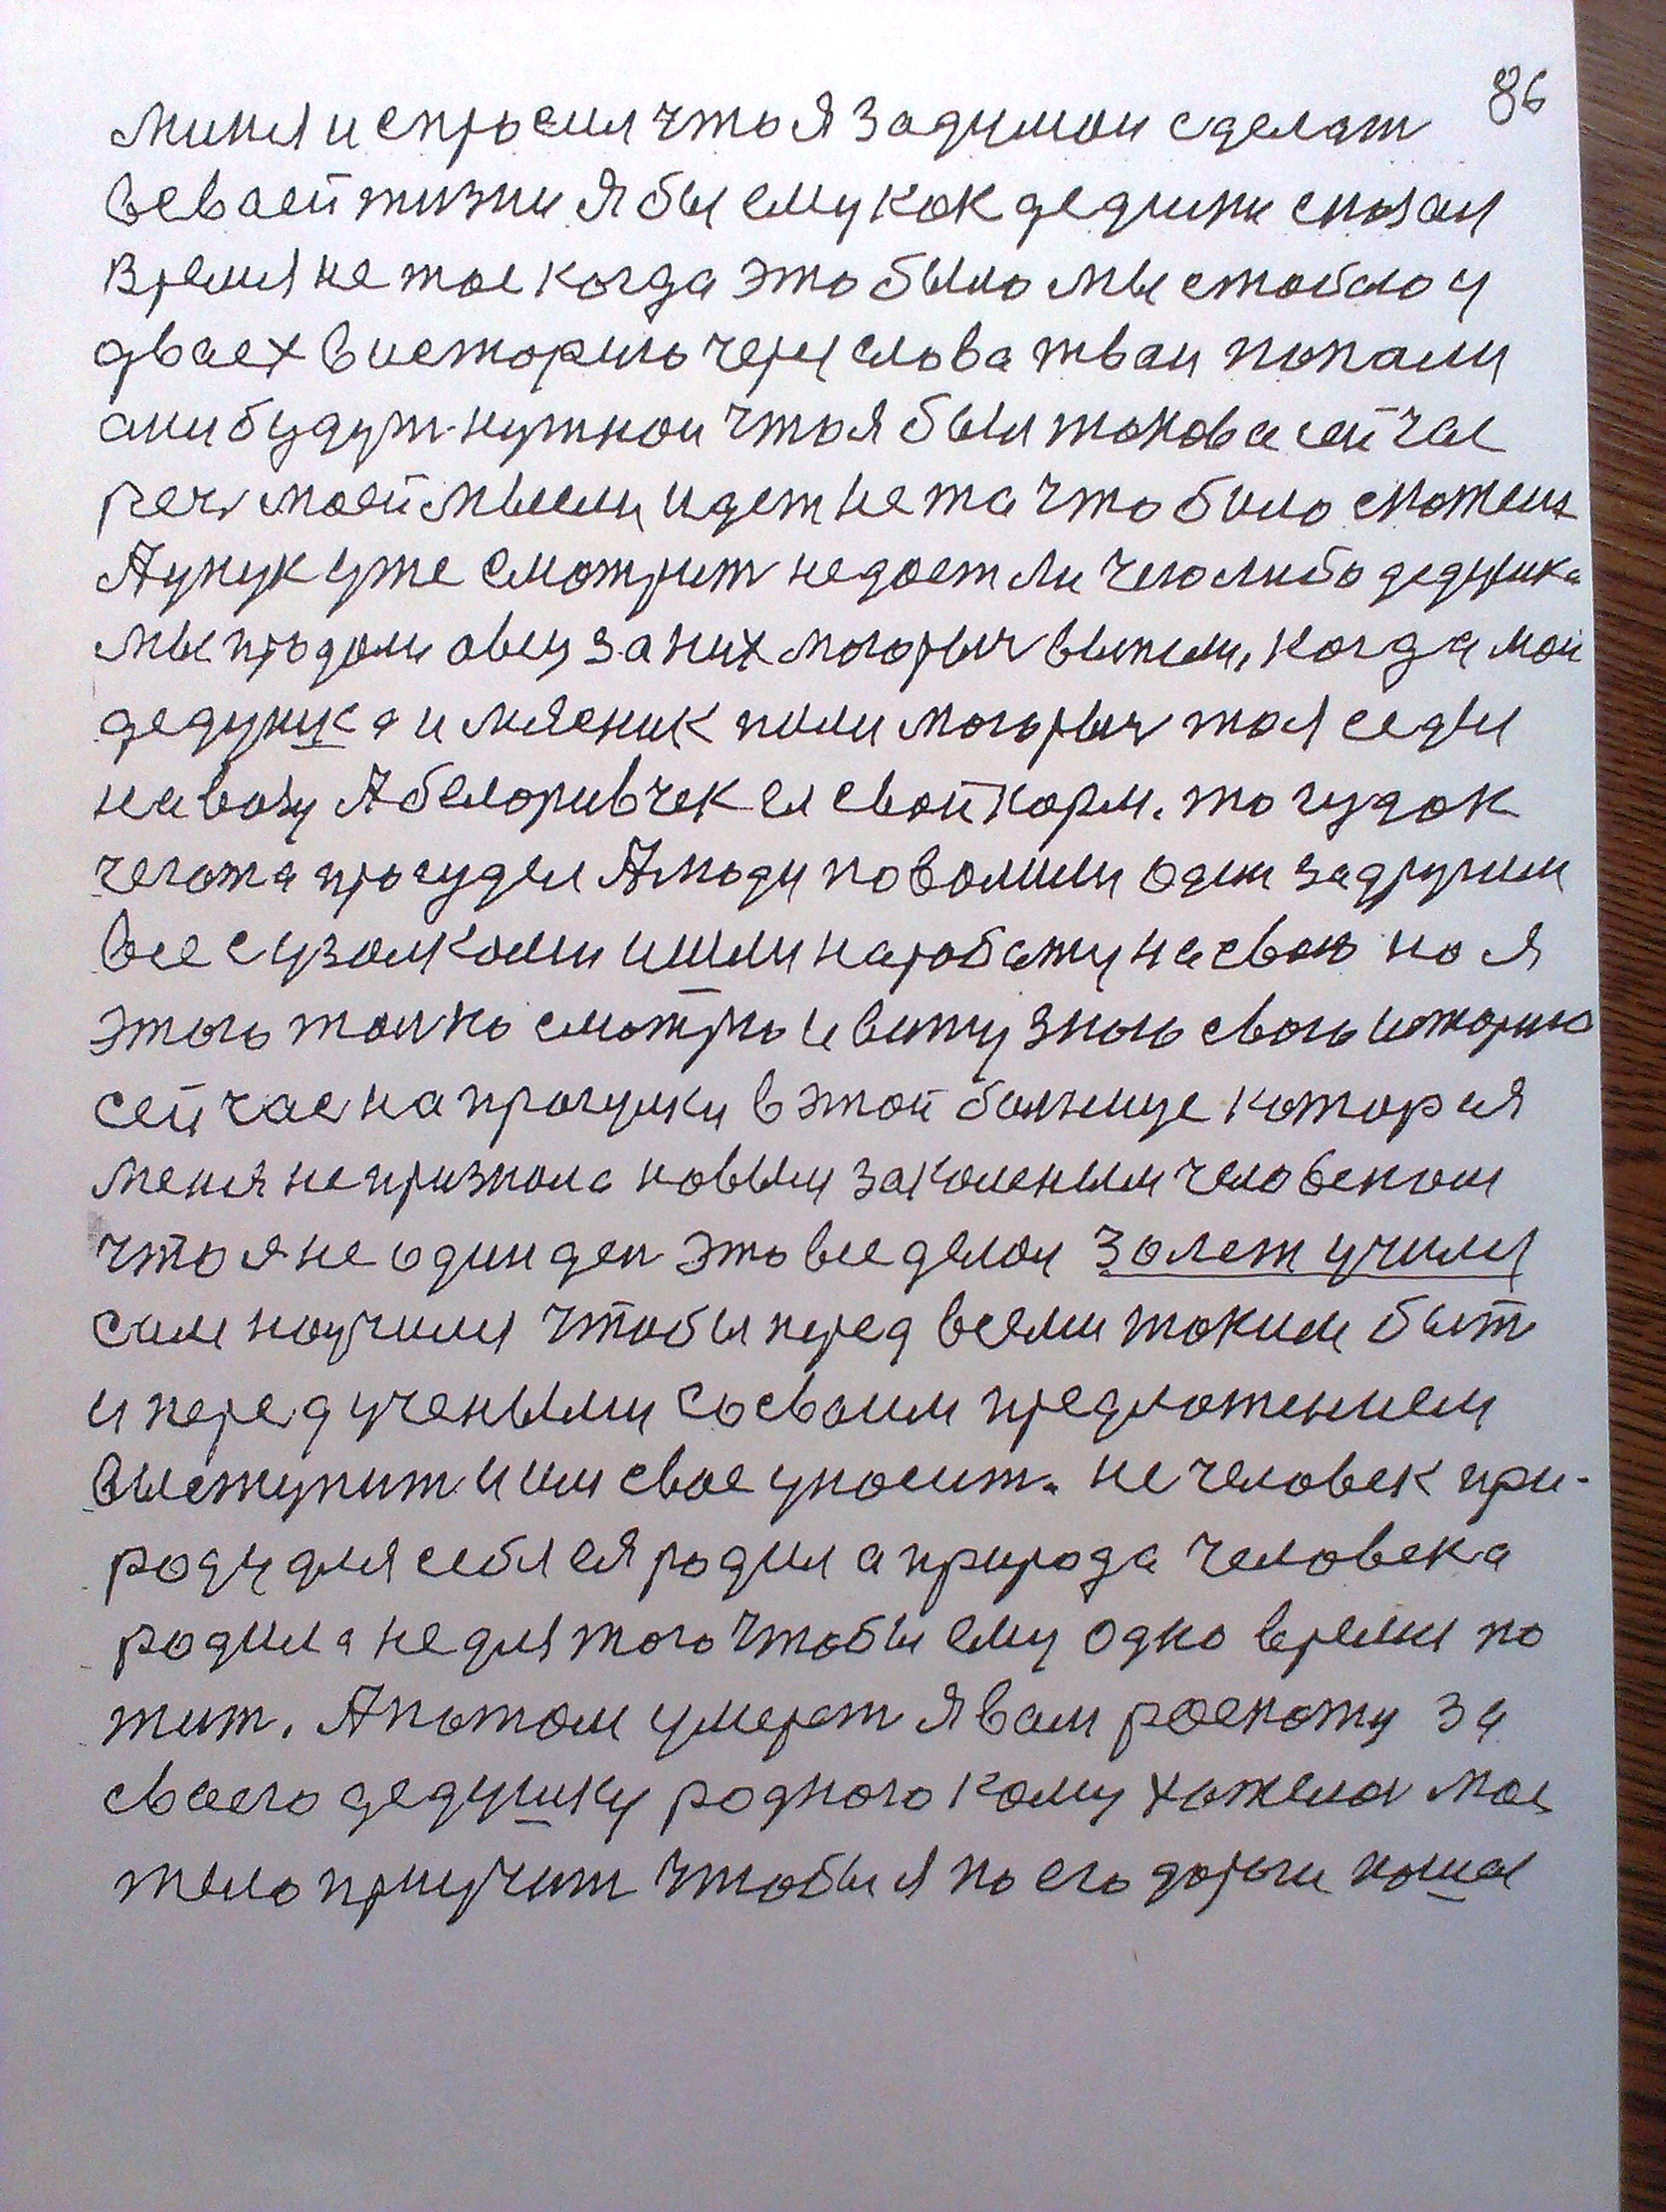 86
миня и спросил что я задумал сделат
всваей жизни я бы ему как дедушке сказал
Время не тое когда это было мы стобою у
дваех висторию чериз слова тваи попали
ани будут нужнои что я был такова сейчас
реч моей мысли идет не та что было скажеш
А унук уже смотрит недаст ли чего либо дедушка
мы продали овец за них могорыч выпили, когда мои
дедушка и мясник пили могорыч то я седел
на возу А белогривчек ел свой корм. то гудок
чегото прогудел А люди повалили один задругим
все сузолками ишли наработу на свою но я
этого толко смотрю и вижу знаю сваю историю
сейчас на прогулки в этой больнице которая
меня не признала новым закаленым человеком
что я не один ден это все делал 30 лет училя
сам научился чтобы перед всеми таким быт
и перед учеными сосваим предложением
выступит и им свое уносит. не человек при-
роду для себя ея родил а природа человека
родила не для того чтобы ему одно время по
жит. А потом умерет я вам роскажу за
сваего дедушку родного кому хотелос мое
тело приучит чтобы я по его дороги пошол